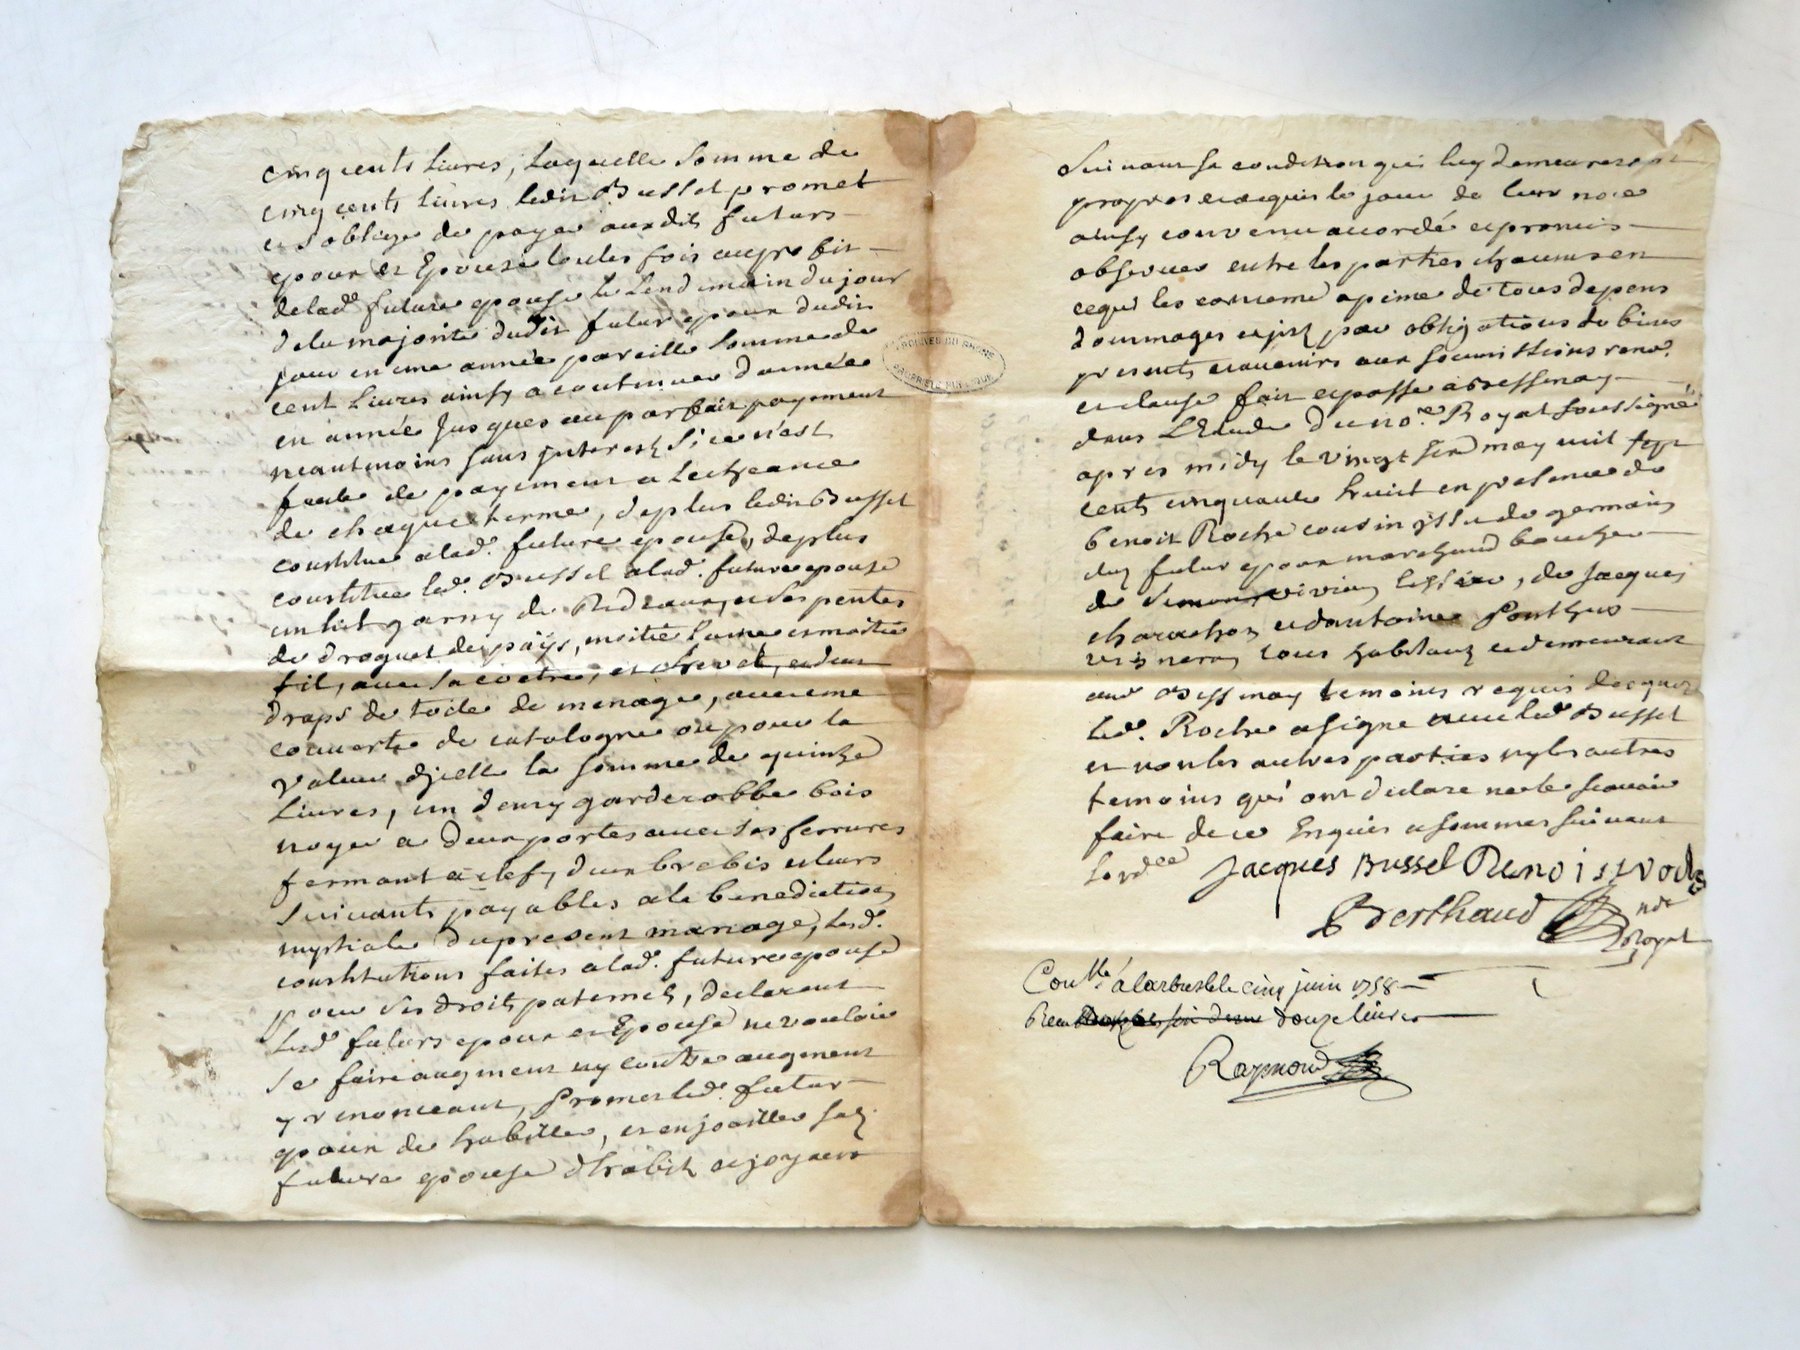 cinq cents Livres, Laquelle Somme de
cinq cents Livres ledit Bussel promet
et s'oblige de payer auxdits futurs
epoux et Epouse toutes fois au profit
delad. future epouse le Lendemain du jour
dela majorité dudit futur epoux dudit
jour en une année pareille Somme de
cent Livres ainsy a continuer d'année
en année jusques au parfait payement
neantmoins sans jnterest Si ce n'est
faute de payement a Lecheance
de chaque terme, deplus ledit Bussel
constitue alad. future epouse, deplus
constitue led. Bussel alad. future epouse
un lit garny de Rideaux, et ses pentes
de droguet de païs, moitié Laine et moitié
fil, avec sa coetre, et chevet, et deux
draps de toile de menage, avec une
couverte de catalogne ou pour la
valeur d'jcelle la somme de quinze
Livres, un demy garderobbe bois
noyer a deux portes avec ses ferrures
fermant a clef, deux brebis et leurs
suivants payables ala benediction
nuptiale du present mariage, lesd.
constitutions faites alad. future epouse
pour ses droits paternels, declarent
lesd. futurs epoux et Epouse ne vouloir
se faire augment ny contre augment
y renonceant, Promet led. futur
epoux de habiller, et enjoailler sad.
future epouse d'habits et joyaux
Suivant sa condition qui luy demeureront
propres et acquis le jour de leur noce
ainsy convenu accordé et promis
observer entre les parties chacune en
ce qui les concerne a peine de tous depens
dommages et jnts par obligations de biens
presents et avenirs aux soumissions renon.
et clause fait et passé a Bessenay
dans L'Etude du no.re Royal Soussigné
apres midy le vingt may mil sept
cents cinquante huit en presence de
benoit Roche cousin jssu de germain
dud. futur epoux marchand boucher
de vivien, de Jacques
et d'antoine Ponthus
vigneron tous habitants et demeurant
aud. Bessenay temoins requis desquels
led. Roche a signé avec led. Bussel
et non les autres parties ny les autres
temoins qui ont declaré ne le scavoir
faire de ce Enquis et sommes suivant
Lord.ce Jacques Bussel Benoist roche
Berthaud nore
Royal
Con.lle a larbresle le cinq juin 1758
Receu douze livres
Raymond
ARCHIVES DU RHONE
PROPRIETE PUBLIQUE